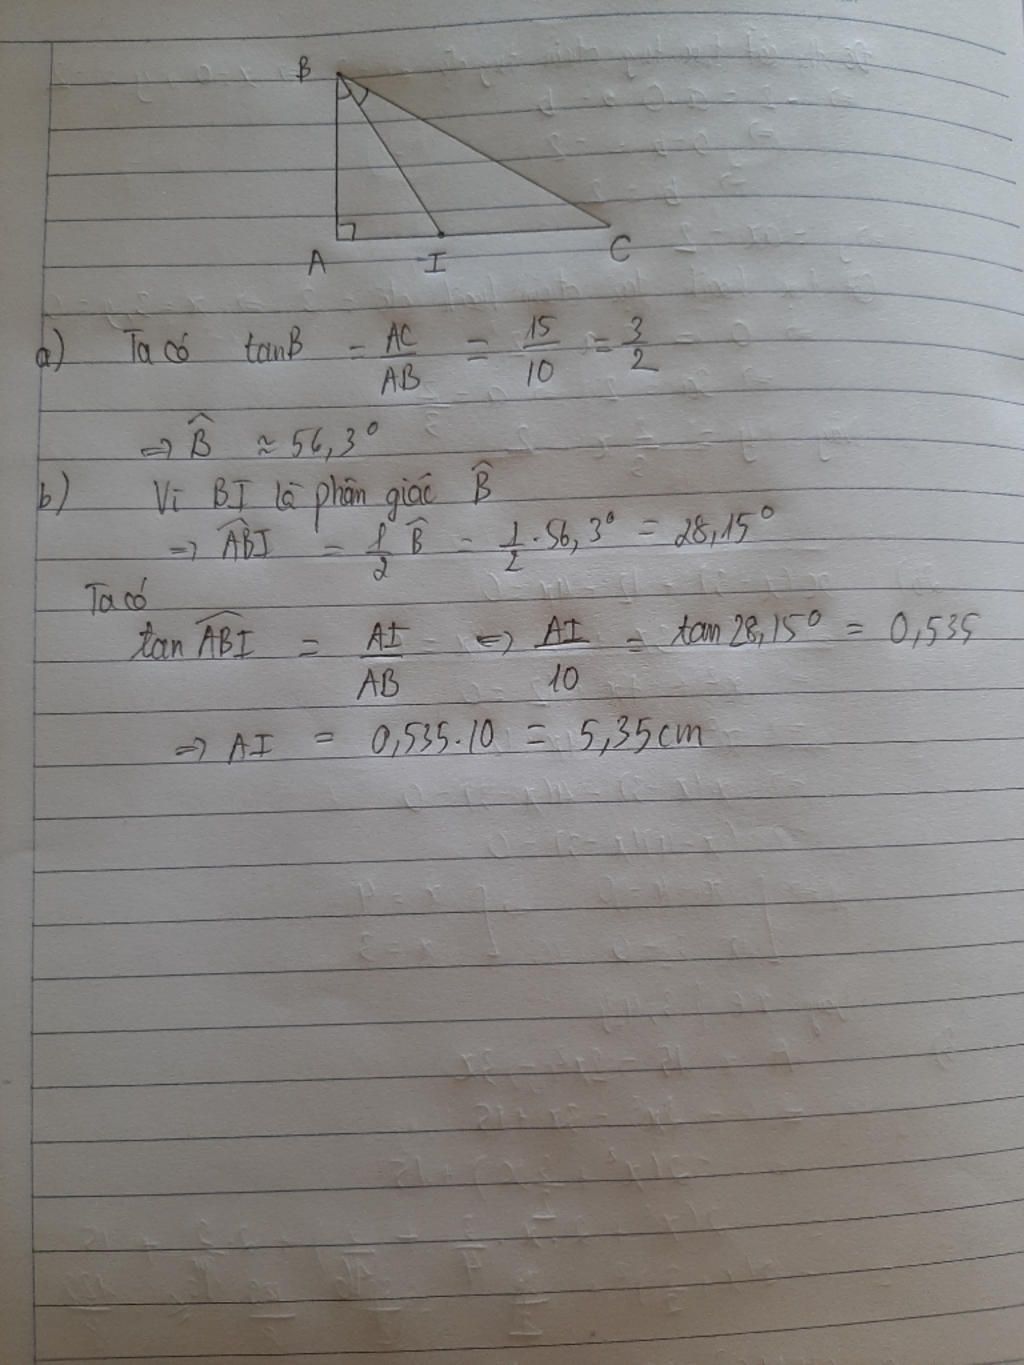 B
A I C
a) Ta có tanB = AC/AB = 15/10 = 3/2
=> B̂ ≈ 56,3°
b) Vì BI là phân giác B̂
=> ÂBI = 1/2 B̂ = 1/2 . 56,3° = 28,15°
Ta có
tan ÂBI = AI/AB <=> AI/10 = tan 28,15° = 0,535
=> AI = 0,535.10 = 5,35cm